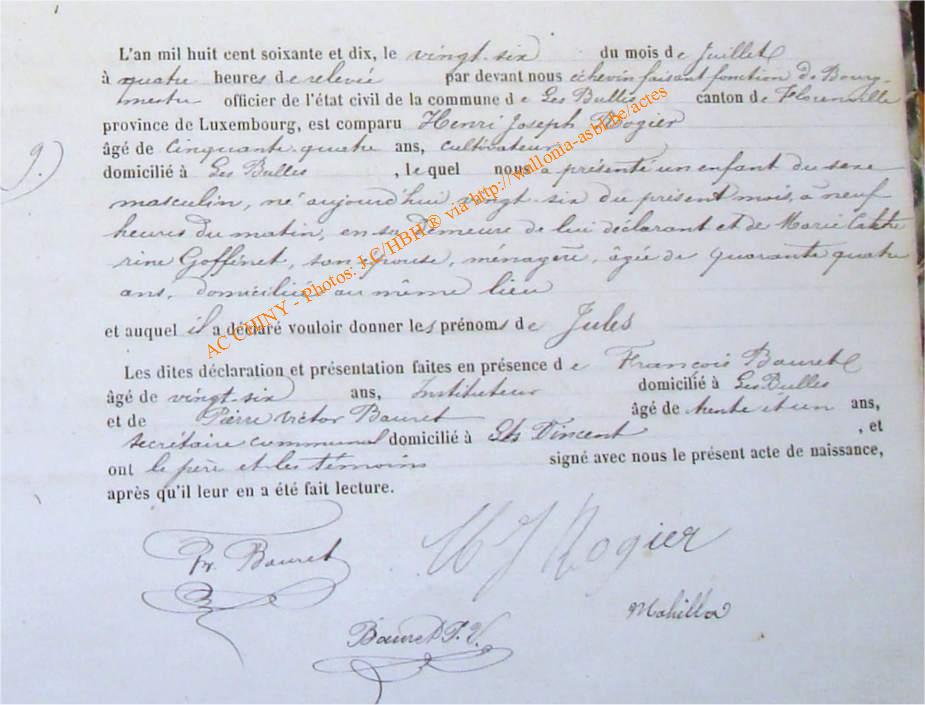 L'an mil huit cent soixante et dix, le vingt-six du mois de Juillet
à quatre heures de relevée par devant nous échevin faisant fonction de Bourg-
mestre officier de l'état civil de la commune de Les Bulles canton de Florenville
province de Luxembourg, est comparu Henri Joseph Rogier
âgé de Cinquante-quatre ans, cultivateur
domicilié à Les Bulles, le quel nous a présenté un enfant du sexe
9.)
masculin, né aujourd'hui vingt-six du présent mois, à neuf
heures du matin, en sa demeure de lui déclarant et de Marie Cathe
rine Goffinet, son épouse, ménagère, âgée de quarante quatre
ans, domiciliée au même lieu
et auquel il a déclaré vouloir donner les prénoms de Jules
Les dites déclaration et présentation faites en présence de François Bauret
âgé de vingt-six ans, Instituteur domicilié à Les Bulles
et de Pierre Victor Bauret âgé de trente et un ans,
secrétaire communal domicilié à St Vincent, et
ont le père et les témoins signé avec nous le présent acte de naissance,
après qu'il leur en a été fait lecture.
Fr. Bauret
H J Rogier
Bauret P. V.
AC CHINY - Photos: J.C/HBH® via http://wallonia-asbl.be/actes